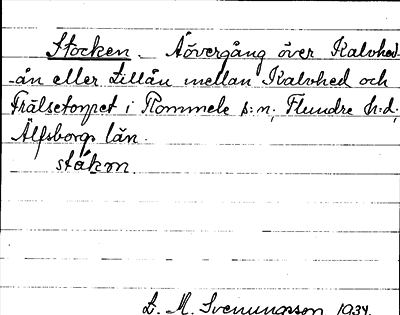 Stocken. Åövergång över Kalvhed-
-ån eller Lillån mellan Kalvhed och
Frälsetorpet i Rommele s:n; Flundre h:d;
Älfsborgs län.
ståkm.
L. M. Svenungsson 1934.